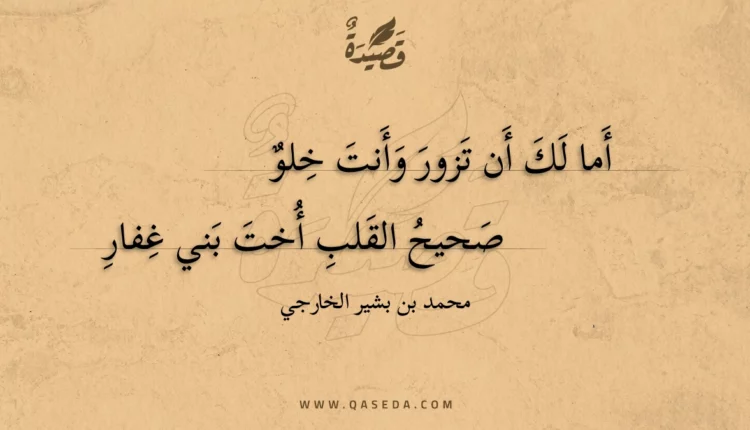 قَصِيدَةٌ
أَما لَكَ أَن تَزورَ وَأَنتَ خِلوٌ
صَحيحُ القَلبِ أُختَ بَني غِفارِ
محمد بن بشير الخارجي
WWW.QASEDA.COM